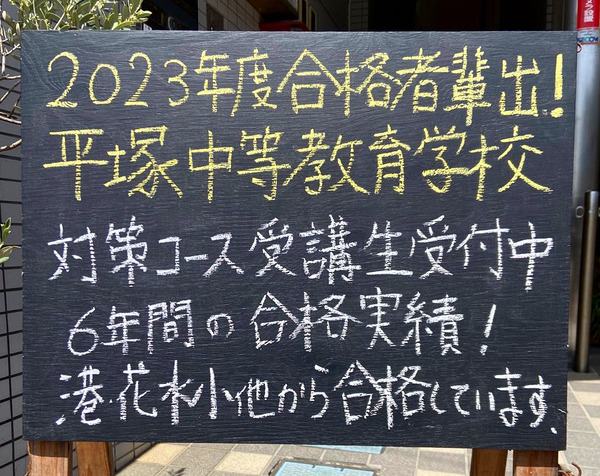 2023年度合格者輩出!
平塚中等教育学校
対策コース受講生受付中
6年間の合格実績!
港、花水小他から合格しています。